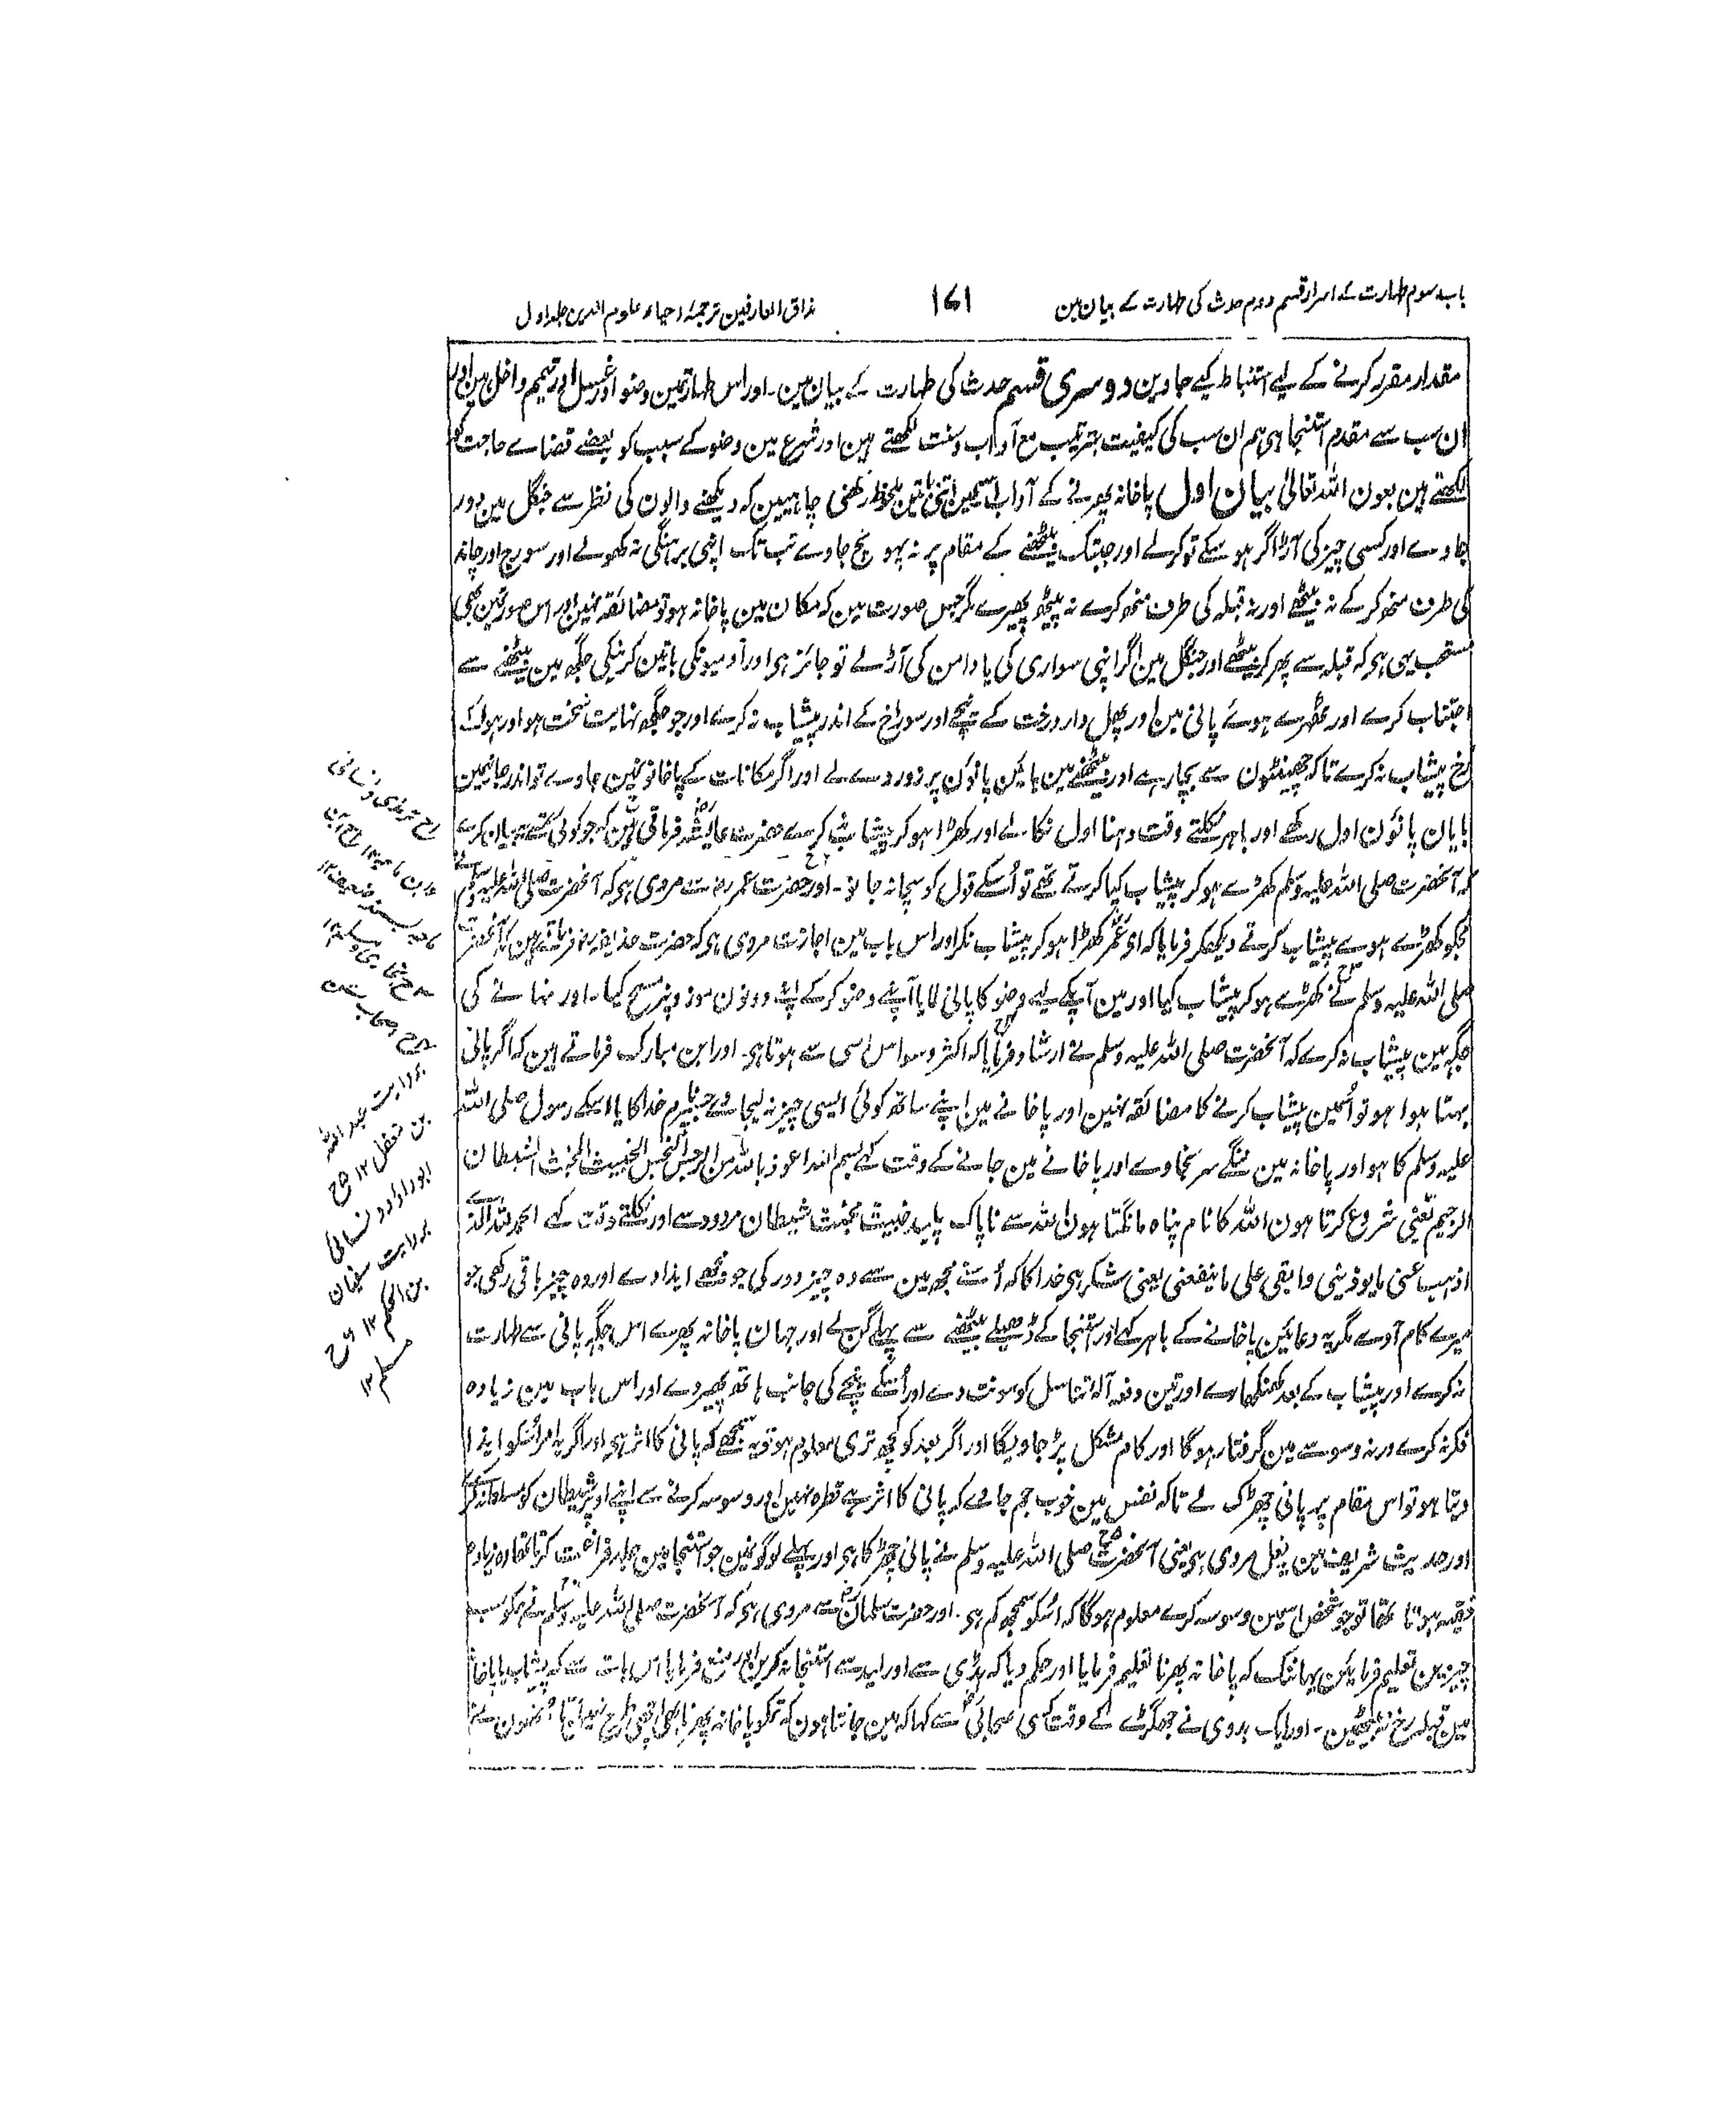 باب سوم طہارت کے اسرار قسم دوم حدث کی طہارت کے بیان مین
۱۶۱
مذاق العارفین ترجمۂ احیاء علوم الدین جلد اول
مقدار مقرر کرنے کے لیے استنباط کیے جاوین دوسری قسم حدث کی طہارت کے بیان مین۔ اور اس طہارتمین وضو اور غسل اور تیمم داخل ہین اور
ان سب سے مقدم استنجا ہی ہم ان سب کی کیفیت بترتیب مع آداب و سنت لکھتے ہین اور شروع مین وضو کے سبب کو یعنے قضاے حاجت کو
لکھتے ہین بعون اللہ تعالیٰ بیان اول پاخانہ پھرنے کے آداب اسمین اتنی باتین ملحوظ رکھنی چاہیین کہ دیکھنے والون کی نظر سے جنگل مین دور
جاوے اور کسی چیز کی آڑ اگر ہو سکے تو کرلے اور جبتک بیٹھنے کے مقام پر نہ پہونچ جاوے تب تک اپنی برہنگی نہ کھولے اور سورج اور چاند
کی طرف منھ کرکے نہ بیٹھے اور نہ قبلہ کی طرف منھ کرے نہ پیٹھ پھیرے مگر جس صورت مین کہ مکان مین پاخانہ ہو تو مضائقہ نہین اور اس صورتمین بھی
مستحب یہی ہی کہ قبلہ سے پھر کر بیٹھے اور جنگل مین اگر اپنی سواری کی یا دامن کی آڑ لے تو جائز ہی اور آدمیونکی باتین کرنیکی جگھ مین بیٹھنے سے
اجتناب کرے اور ٹھہرے ہوے پانی مین اور پھل دار درخت کے نیچے اور سوراخ کے اندر پیشاب نہ کرے اور جو جگھ نہایت سخت ہو اور ہوا کے
رخ پیشاب نہ کرے تا کہ چھینٹون سے بچا رہے اور بیٹھنے مین بائین پانؤن پر زور دے لے اور اگر مکانات کے پاخانونمین جاوے تو اندر جانیمین
بایان پانؤن اول رکھے اور باہر نکلتے وقت دہنا اول نکالے اور کھڑا ہوکر پیشاب نہ کرے حضرت عایشہ رض فرماتی ہین کہ جو کوئی تمسے یہ بیان کرے
کہ آنحضرت صلی اللہ علیہ وسلم کھڑے ہو کر پیشاب کیا کرتے تھے تو اُسکے قول کو سچا نہ جانو۔ اور حضرت عمر رض سے مروی ہی کہ آنحضرت صلی اللہ علیہ وسلم نے
مجکو کھڑے ہوے پیشاب کرتے دیکھکر فرمایا کہ ای عمر کھڑا ہو کر پیشاب نکر اور اس باب مین اجازت مروی ہی کہ حضرت حذیفہ رض فرماتے ہین کہ آنحضرت
صلی اللہ علیہ وسلم نے کھڑے ہو کر پیشاب کیا اور مین آپکے لیے وضو کا پانی لایا آپنے وضو کرکے اپنے دونون موزونپر مسح کیا۔ اور نہانے کی
جگہ مین پیشاب نہ کرے کہ آنحضرت صلی اللہ علیہ وسلم نے ارشاد فرمایا کہ اکثر وسواس اسی سے ہوتا ہی۔ اور ابن مبارک فرماتے ہین کہ اگر پانی
بہتا ہوا ہو تو اُسمین پیشاب کرنے کا مضائقہ نہین اور پاخانے مین اپنے ساتھ کوئی ایسی چیز نہ لیجاوے جسپر نام خدا کا یا اسکے رسول صلی اللہ
علیہ وسلم کا ہو اور پاخانہ مین ننگے سر نجاوے اور پاخانے مین جانے کے وقت کہے بسم اللہ اعوذ باللہ من الرجس النجس الخبیث المخبث الشیطان
الرجیم یعنی شروع کرتا ہون اللہ کا نام پناہ مانگتا ہون اللہ سے ناپاک پلید خبیث مخبث شیطان مردود سے اور نکلتے وقت کہے الحمد للہ الذے
اذہب عنی ما یوذینی وابقی علی ما ینفعنی یعنی شکر ہی خدا کا کہ اُسنے مجھ مین سے وہ چیز دور کی جو مجھے ایذا دے اور وہ چیز باقی رکھی جو
میرے کام آوے مگر یہ دعائین پاخانے کے باہر کہے اور استنجا کے ڈھیلے بیٹھنے سے پہلے گن لے اور جہان پاخانہ پھرے اس جگہ پانی سے طہارت
نہ کرے اور پیشاب کے بعد کھنکھارے اور تین دفعہ آلۂ تناسل کو سونت دے اور اُسکے نیچے کی جانب ہاتھ پھیر دے اور اس باب مین زیادہ
فکر نہ کرے ورنہ وسوسے مین گرفتار ہوگا اور کام مشکل پڑ جاویگا اور اگر بعد کو کچھ تری معلوم ہو تو یہ سمجھے کہ پانی کا اثر ہی اور اگر یہ امر اُسکو ایذا
دیتا ہو تو اس مقام پر پانی چھڑک لے تا کہ نفس مین خوب جم جاوے کہ پانی کا اثر ہے قطرہ نہین اور وسوسہ کرنے سے اپنے اوپر شیطان کو مسلط نہ کرے
اور حدیث شریف مین یہ فعل مروی ہی یعنی آنحضرت صلی اللہ علیہ وسلم نے پانی چھڑکا ہی اور پہلے لوگونمین جو استنجا مین جلد فراغت کرتا تھا وہ زیادہ
فقیہ ہوتا تھا تو جو شخص اسمین وسوسہ کرے معلوم ہوگا کہ اُسکو سمجھ کم ہی۔ اور حضرت سلمان رض سے مروی ہی کہ آنحضرت صلی اللہ علیہ وسلم نے ہمکو سب
چیزین تعلیم فرمائین یہانتک کہ پاخانہ پھرنا تعلیم فرمایا اور حکم دیا کہ ہڈی سے اور لید سے استنجا نہ کرین اور منع فرمایا اس بات سے کہ پیشاب یا پاخانہ
مین قبلہ رخ نہ بیٹھین۔ اور ایک بدوی نے جھگڑے کے وقت کسی صحابی سے کہا کہ مین جانتا ہون کہ تمکو پاخانہ پھرنا بھی اچھی طرح نہین آتا اُنھون نے
ح ترمذی و نسائی
و ابن ماجہ ۱۲ ح ابن
ماجہ بسند ضعیف ۱۲
ح بخاری و مسلم ۱۲
ح اصحاب سنن
بروایت عبد اللہ
بن مغفل ۱۲ ح
ابوداؤد و نسائی
بروایت سفیان
بن الحکم ۱۲ ح
مسلم ۱۲